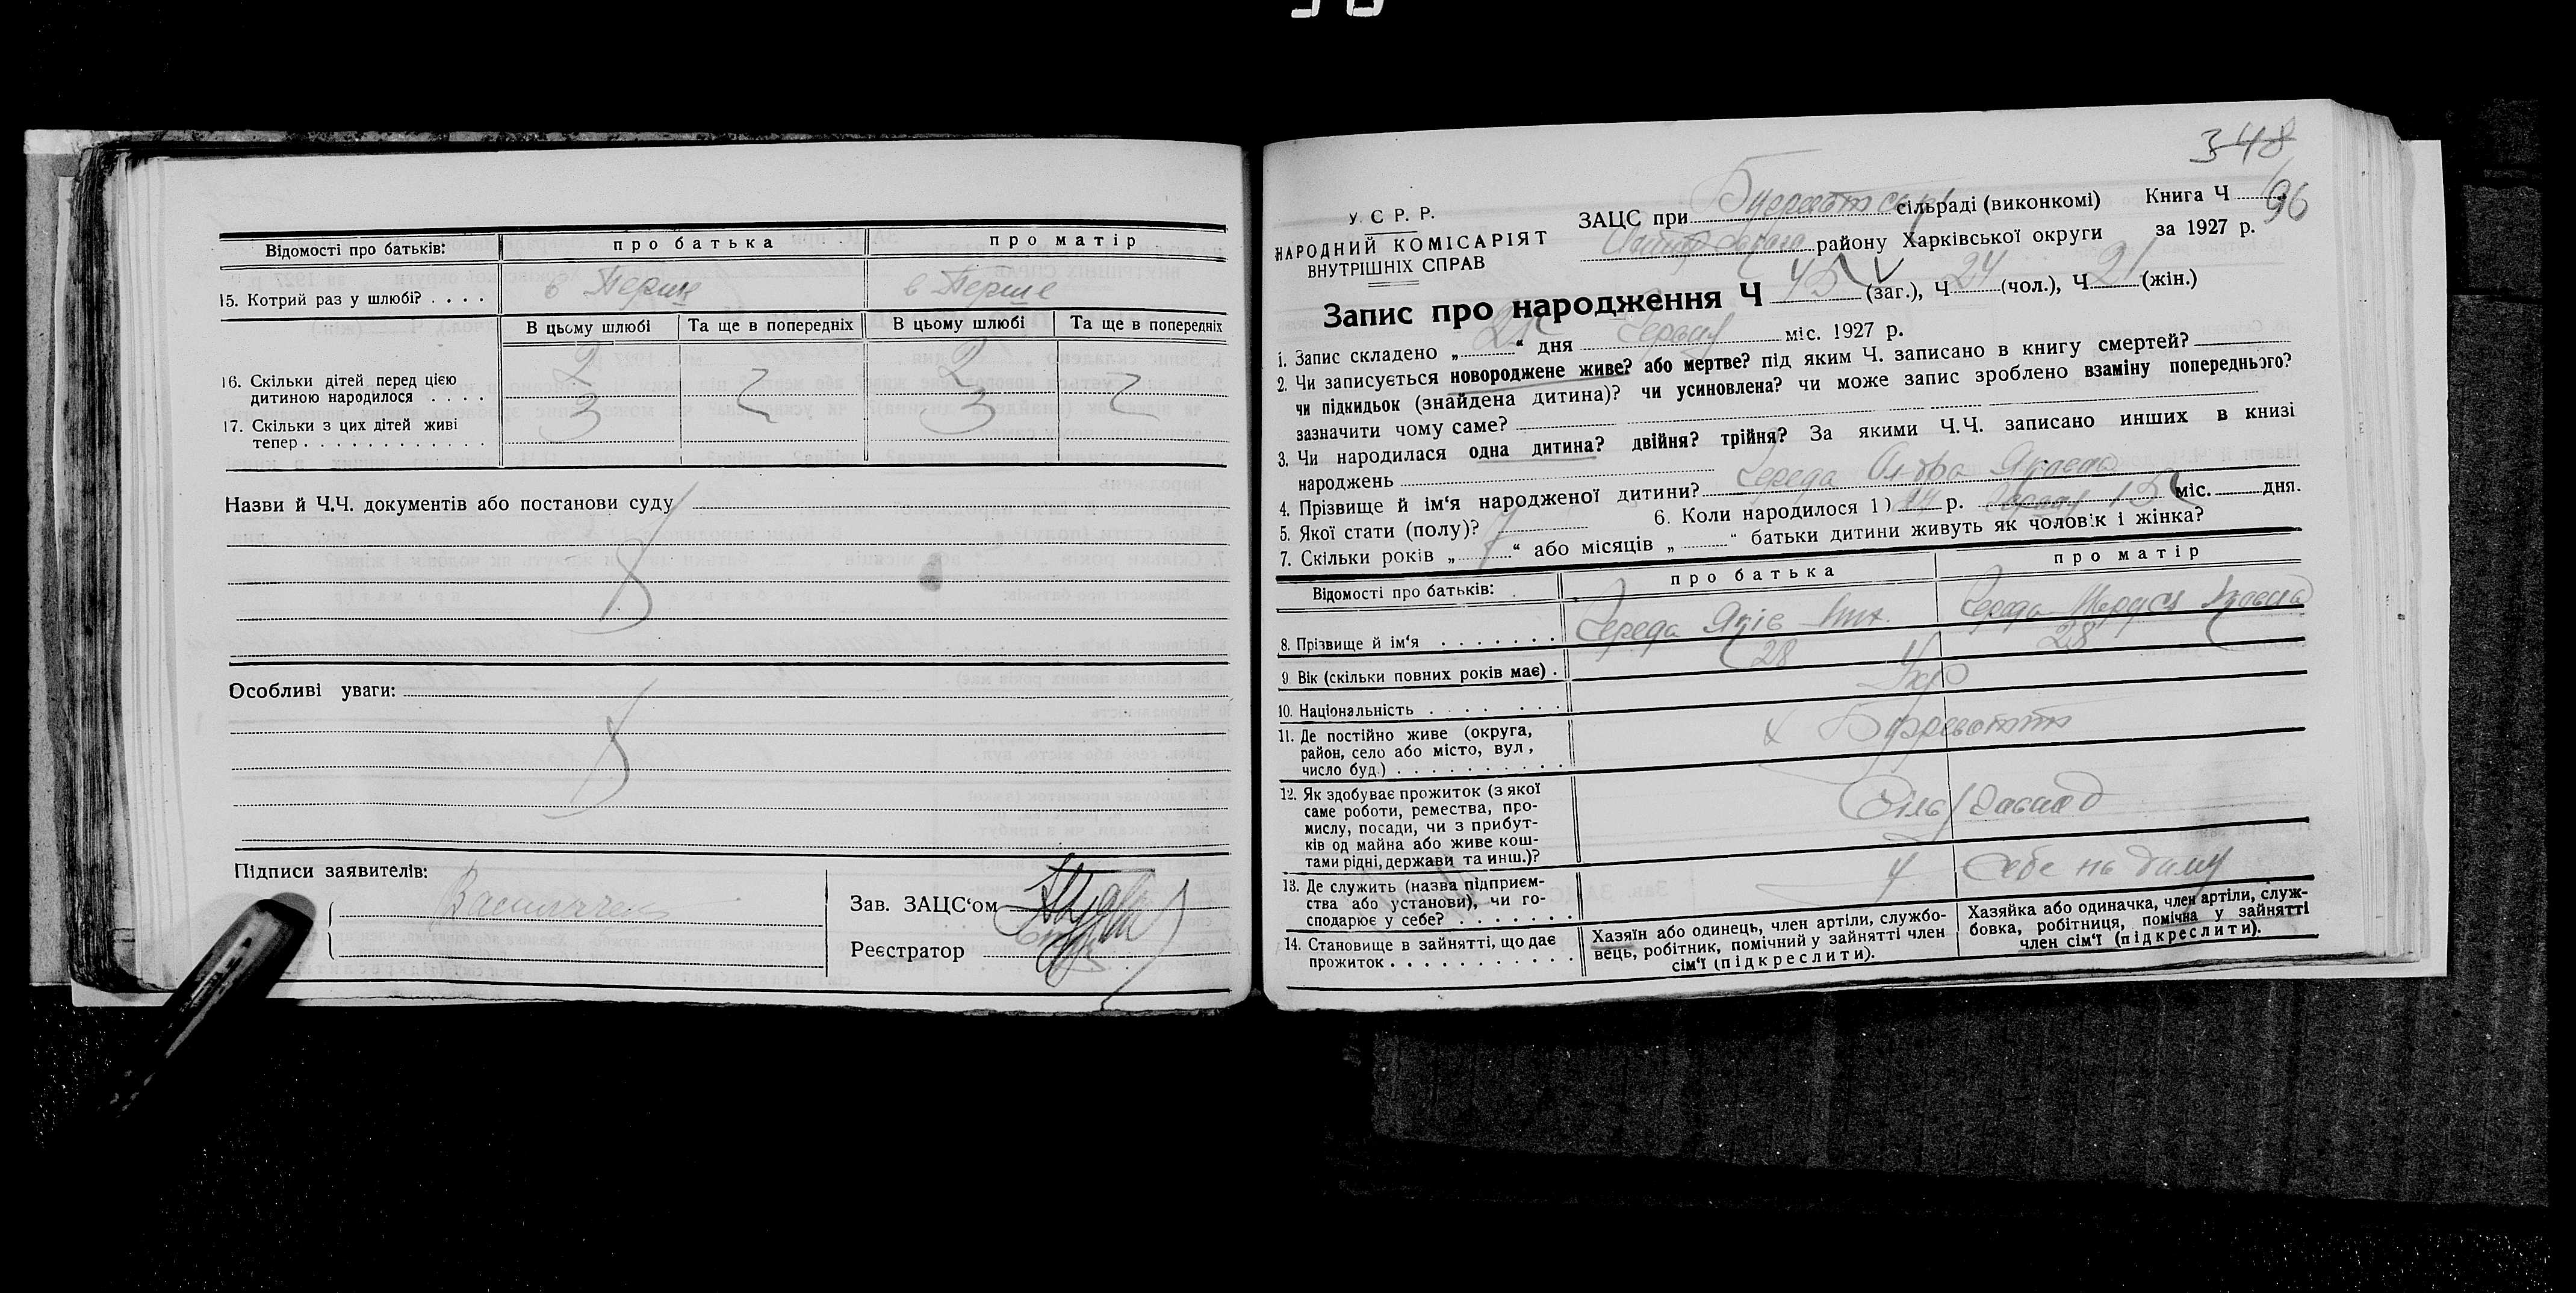 Відомості про батьків: про батька про матір
15. Котрий раз у шлюбі? . . . . в Перше в Перше
В цьому шлюбі Та ще в попередніх В цьому шлюбі Та ще в попередніх
16. Скільки дітей перед цією
дитиною народилося . . . . 2 2
17. Скільки з цих дітей живі 3 3
тепер . . . . . . . . . . . .
Назви й Ч.Ч. документів або постанови суду
Особливі уваги:
Підписи заявителів:
Зав. ЗАЦС'ом
Реєстратор
348
96
У. С. Р. Р.
НАРОДНИЙ КОМІСАРІЯТ
ВНУТРІШНІХ СПРАВ
ЗАЦС при сільраді (виконкомі) Книга Ч
району Харківської округи за 1927 р.
Запис про народження Ч 45 (заг.), Ч 24 (чол.), Ч 21 (жін.)
1. Запис складено „ “ дня Червня міс. 1927 р.
2. Чи записується новороджене живе? або мертве? під яким Ч. записано в книгу смертей?
чи підкидьок (знайдена дитина)? чи усиновлена? чи може запис зроблено взаміну попереднього?
зазначити чому саме?
3. Чи народилася одна дитина? двійня? трійня? За якими Ч.Ч. записано инших в книзі
народжень
4. Прізвище й ім'я народженої дитини? Середа
5. Якої стати (полу)? 6. Коли народилося 1) р. міс. дня.
7. Скільки років „ 7 “ або місяців „ “ батьки дитини живуть як чоловік і жінка?
Відомості про батьків: про батька про матір
8. Прізвище й ім'я . . . . . . . Середа Яків Середа Маруся
9 Вік (скільки повних років має) . 28 28
10. Національність . . . . . . . Укр
11. Де постійно живе (округа,
район, село або місто, вул,
число буд.) . . . . . . . . . .
12. Як здобуває прожиток (з якої
саме роботи, ремества, про-
мислу, посади, чи з прибут-
ків од майна або живе кош-
тами рідні, держави та инш.)?
13. Де служить (назва підприєм-
ства або установи), чи го-
сподарює у себе? . . . . . . .
14. Становище в зайнятті, що дає
прожиток . . . . . . . . . . .
Хазяїн або одинець, член артіли, службо-
вець, робітник, помічний у зайнятті член
сім'ї (підкреслити).
Хазяйка або одиначка, член артіли, служ-
бовка, робітниця, помічна у зайнятті
член сім'ї (підкреслити).